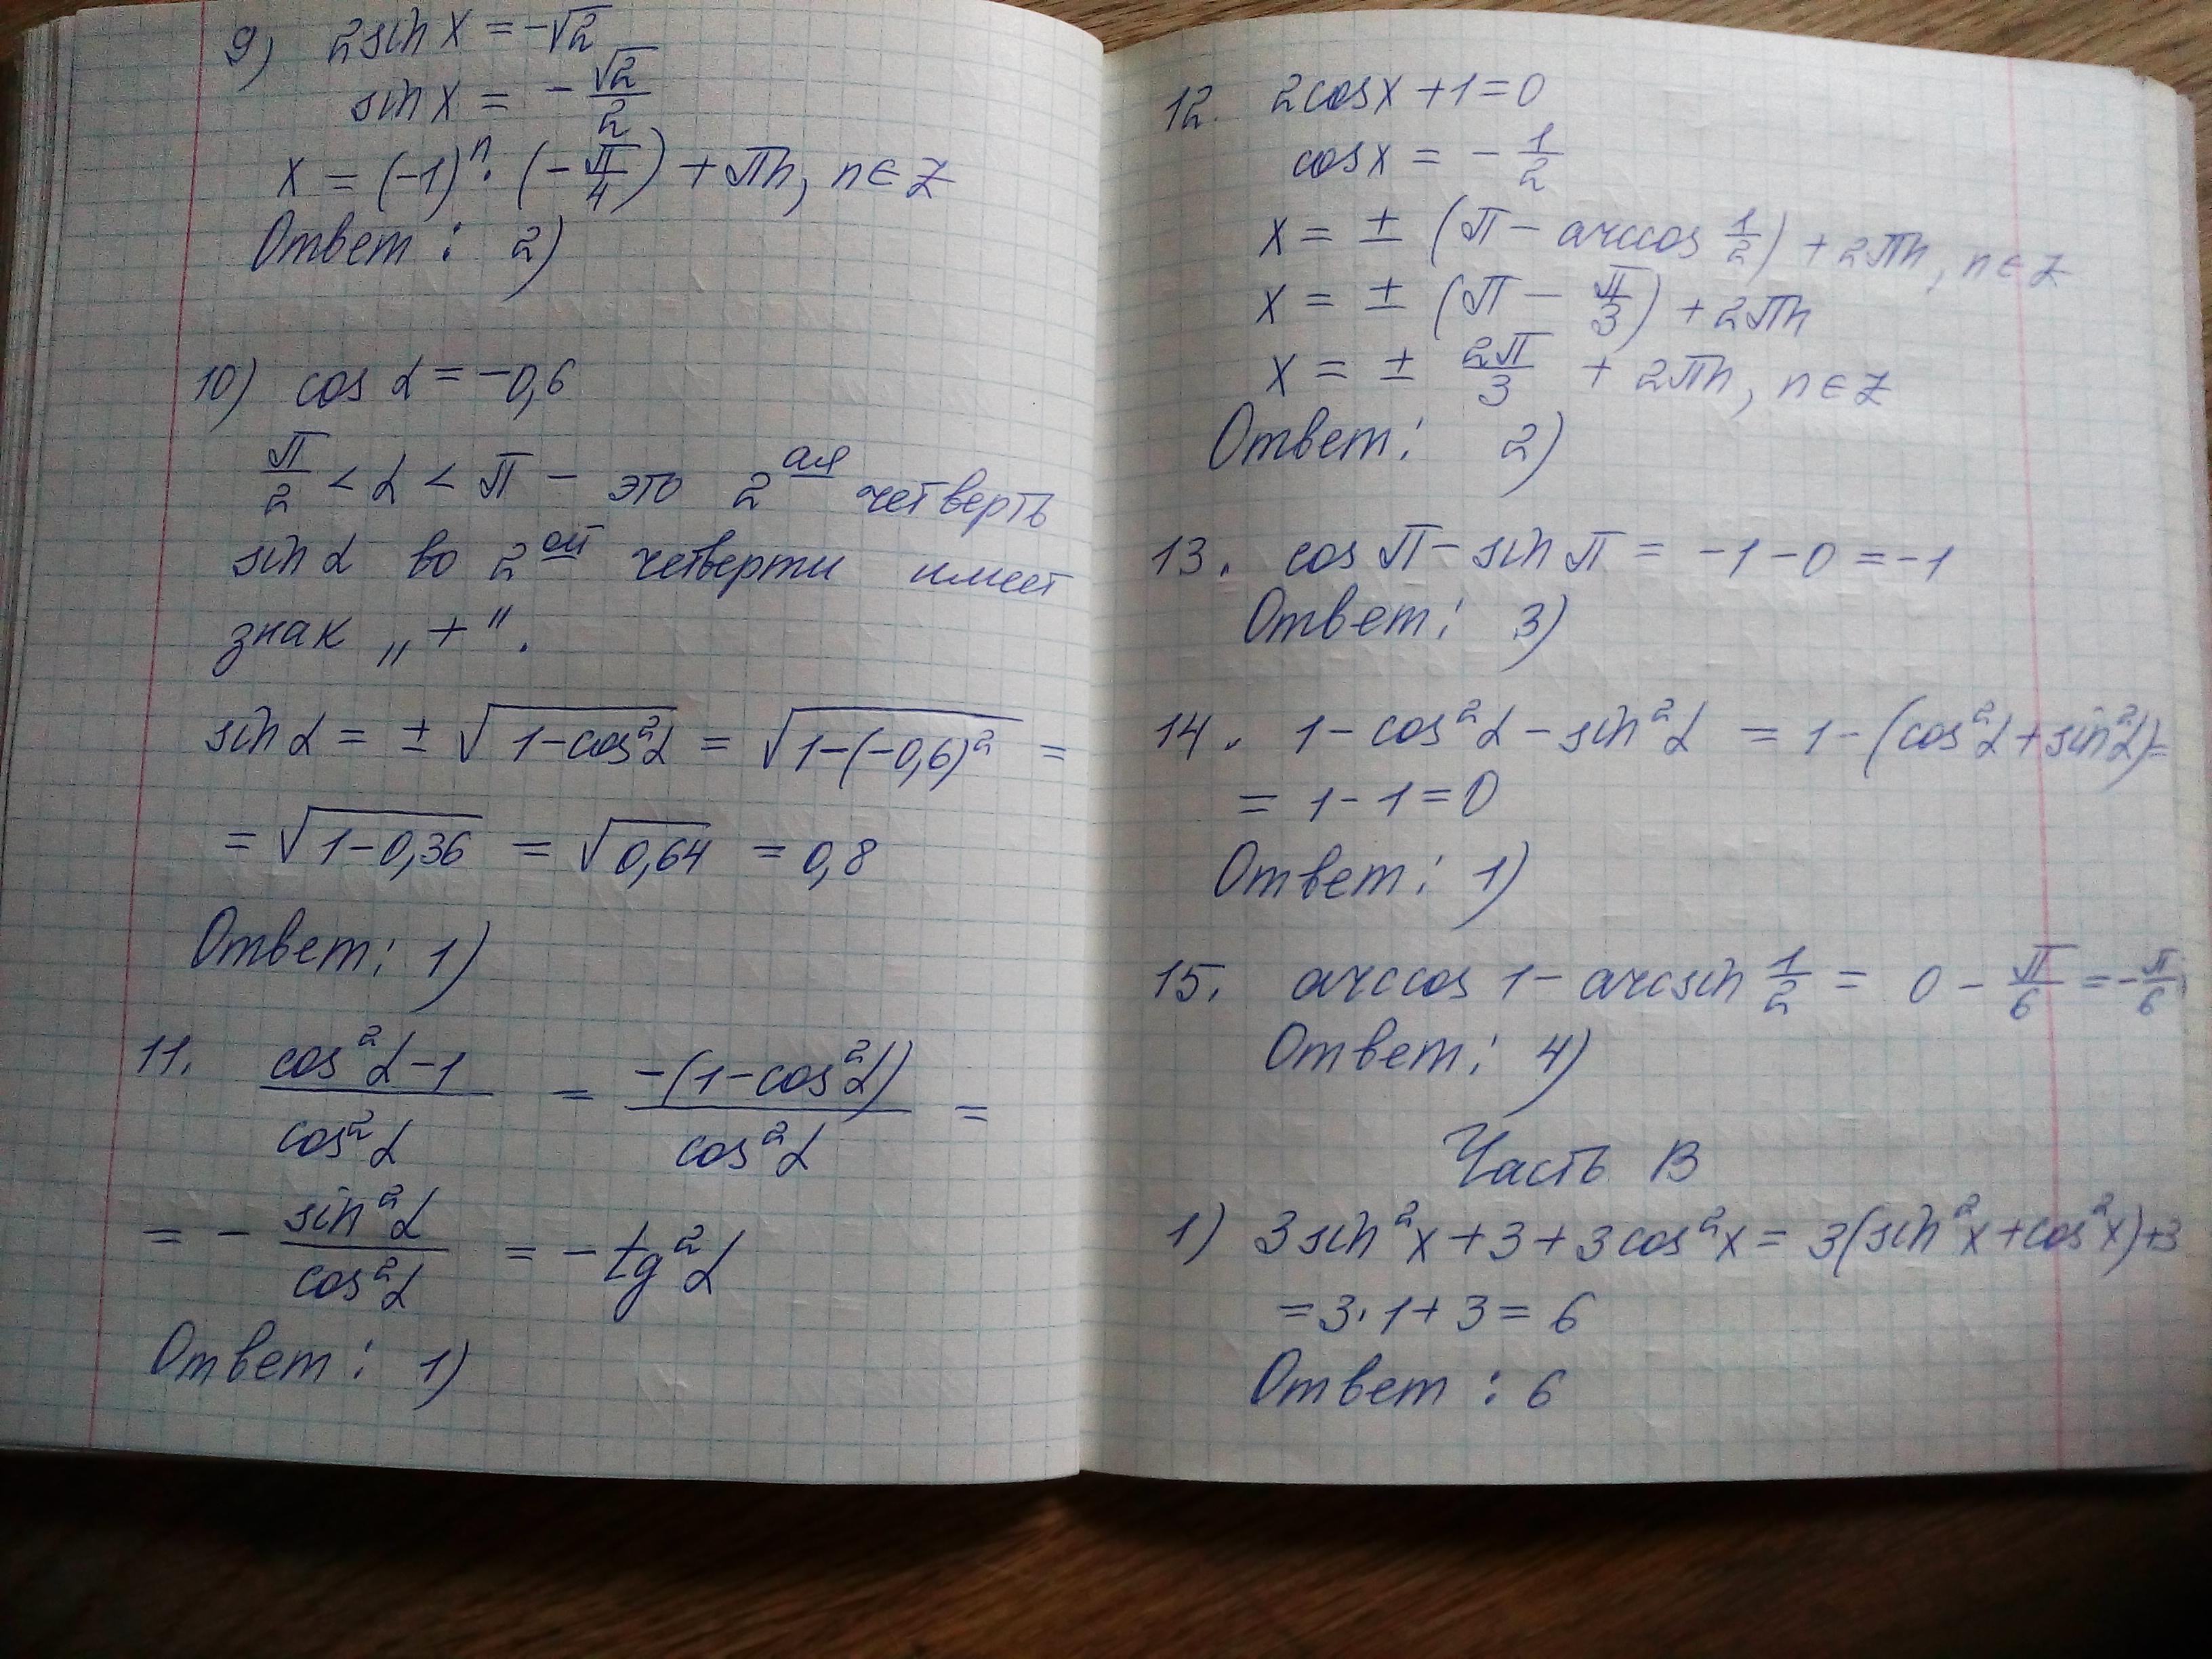 9) 2 sin x = -√2
sin x = - √2/2
x = (-1)ⁿ · (- π/4) + πn, n ∈ Z
Ответ : 2)
10) cos α = -0,6
π/2 < α < π - это 2ая четверть
sin α во 2ой четверти имеет
знак „+".
sin α = ± √(1-cos²α) = √(1-(-0,6)²) =
= √(1-0,36) = √0,64 = 0,8
Ответ: 1)
11. (cos²α-1)/(cos²α) = (-(1-cos²α))/(cos²α) =
= - sin²α/cos²α = - tg²α
Ответ : 1)
12. 2cosx + 1 = 0
cosx = - 1/2
x = ± (π - arccos 1/2) + 2πn, n ∈ Z
x = ± (π - π/3) + 2πn
x = ± 2π/3 + 2πn, n ∈ Z
Ответ: 2)
13. cos π - sin π = -1 - 0 = -1
Ответ: 3)
14. 1 - cos²α - sin²α = 1 - (cos²α + sin²α) =
= 1 - 1 = 0
Ответ: 1)
15. arccos 1 - arcsin 1/2 = 0 - π/6 = - π/6
Ответ: 4)
Часть В
1) 3 sin²x + 3 + 3 cos²x = 3(sin²x + cos²x) + 3
= 3 · 1 + 3 = 6
Ответ : 6